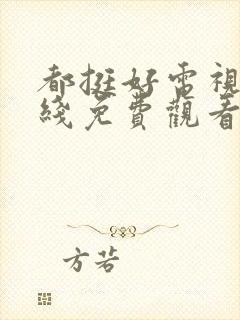 都挺好电視
綫免費觀看
方若